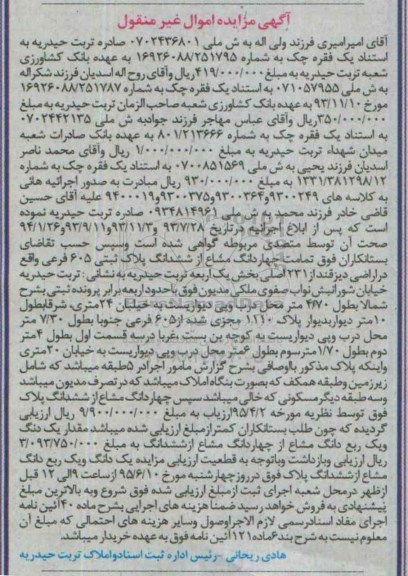 آگهی مزایده اموال غیر منقول
آقای امیرامیری فرزند ولی اله به ش ملی ۰۷۰۲۴۳۶۸۰۱ صادره تربت حیدریه به
استناد یک فقره چک به شماره ۱۶۹۲۶۰۸۸/۲۵۱۷۹۵ به عهده بانک کشاورزی
شعبه تربت حیدریه به مبلغ ۴۱۹/۰۰۰/۰۰۰ ریال وآقای روح اله اسدیان فرزند شکراله
به ش ملی ۰۷۱۰۵۷۹۵۵ به استناد یک فقره چک به شماره ۱۶۹۲۶۰۸۸/۲۵۱۷۸۷
مورخ ۹۳/۱۱/۱۰ به عهده بانک کشاورزی شعبه صاحب الزمان تربت حیدریه به مبلغ
۳۵۰/۰۰۰/۰۰۰ ریال وآقای عباس مهاجر فرزند جوادبه ش ملی ۰۷۰۲۴۴۲۱۳۵
به استناد یک فقره چک به شماره ۸۰۱/۲۱۳۶۶۶ به عهده بانک صادرات شعبه
میدان شهداء تربت حیدریه به مبلغ ۱/۰۰۰/۰۰۰/۰۰۰ ریال وآقای محمد ناصر
اسدیان فرزند یحیی به ش ملی ۰۷۰۰۸۵۱۵۶۹ به استناد یک فقره چک به شماره
۱۳۳۱/۳۸۱۲۹۸/۱۲ به مبلغ ۹۳۰/۰۰۰/۰۰۰ ریال مبادرت به صدور اجرائیه هائی
به کلاسه های ۹۳۰۰۲۴۹و۹۳۰۰۳۶۴و۹۳۰۰۳۷۵و۹۴۰۰۰۱۹ علیه آقای حسین
قاضی خادر فرزند محمد به ش ملی ۰۹۳۴۸۱۴۹۶۱ صادره تربت حیدریه نموده
است که پس از ابلاغ اجرائیه درتاریخ ۹۳/۷/۲۸ و۹۳/۱۱/۳ و۹۳/۱۱/۹ و۹۴/۱/۲۶
صحت آن توسط متصدی مربوطه گواهی شده است وسپس حسب تقاضای
بستانکاران فوق تمامت چهاردانگ مشاع از ششدانگ پلاک ثبتی ۶۰۵ فرعی واقع
دراراضی دیزقنداز۲۳۱ اصلی بخش یک اربعه تربت حیدریه به نشانی : تربت حیدریه
خیابان شورانبش نواب صفوی ملکی مدیون فوق باحدوداربعه برابر پرونده ثبتی بشرح
شمالا بطول ۴/۷۰ متر محل درب وپی دیواریست به خیابان ۲۴متری، شرقابطول
۱۰متر دیواربدیوار پلاک ۱۱۱۰ مجزی شده از۶۰۵ فرعی جنوبا بطول ۷/۳۰ متر
محل درب وپی دیواریست به کوچه بن بست ،غربا درسه قسمت اول بطول ۴متر
دوم بطول ۱/۷۰مترسوم بطول ۶متر محل درب وپی دیواریست به خیابان ۲۰متری
واینکه پلاک مذکور بااوصافی بشرح گزارش مأمور اجرادر ۵طبقه میباشد که شامل
زیرزمین وطبقه همکف که بصورت بنگاه املاک میباشد که در تصرف مدیون میباشد
وسه طبقه دیگر مسکونی که خالی میباشد سپس چهاردانگ مشاع از ششدانگ پلاک
فوق توسط نظریه مورخه ۹۵/۴/۲ارزیاب به مبلغ ۹/۹۰۰/۰۰۰/۰۰۰ ریال ارزیابی
گردیده که چون طلب بستانکاران کمترازمبلغ ارزیابی شده میباشد مقدار یک دنگ
ویک ربع دانگ مشاع از چهاردانگ مشاع ازششدانگ به مبلغ ۳/۰۹۳/۷۵۰/۰۰۰
ریال ارزیابی وبازداشت وباتوجه به قطعیت ارزیابی مزایده یک دانگ ویک ربع دانگ
مشاع ازششدانگ پلاک فوق درروزچهارشنبه مورخ ۹۵/۶/۱۰ ازساعت ۹الی ۱۲ قبل
ازظهر درمحل شعبه اجرای ثبت ازمبلغ ارزیابی شده فوق شروع وبه بالاترین مبلغ
پیشنهادی به فروش خواهد رسید ضمنا هزینه های اجرایی بشرح ماده ۴۰آئین نامه
اجرای مفاد اسنادرسمی لازم الاجراوصول وسایر هزینه های احتمالی که مبلغ آن
معلوم نیست به شرح بند۶ماده۱۲۱ آئین نامه فوق به عهده خریدار میباشد.
هادی ریحانی -رئیس اداره ثبت اسنادواملاک تربت حیدریه